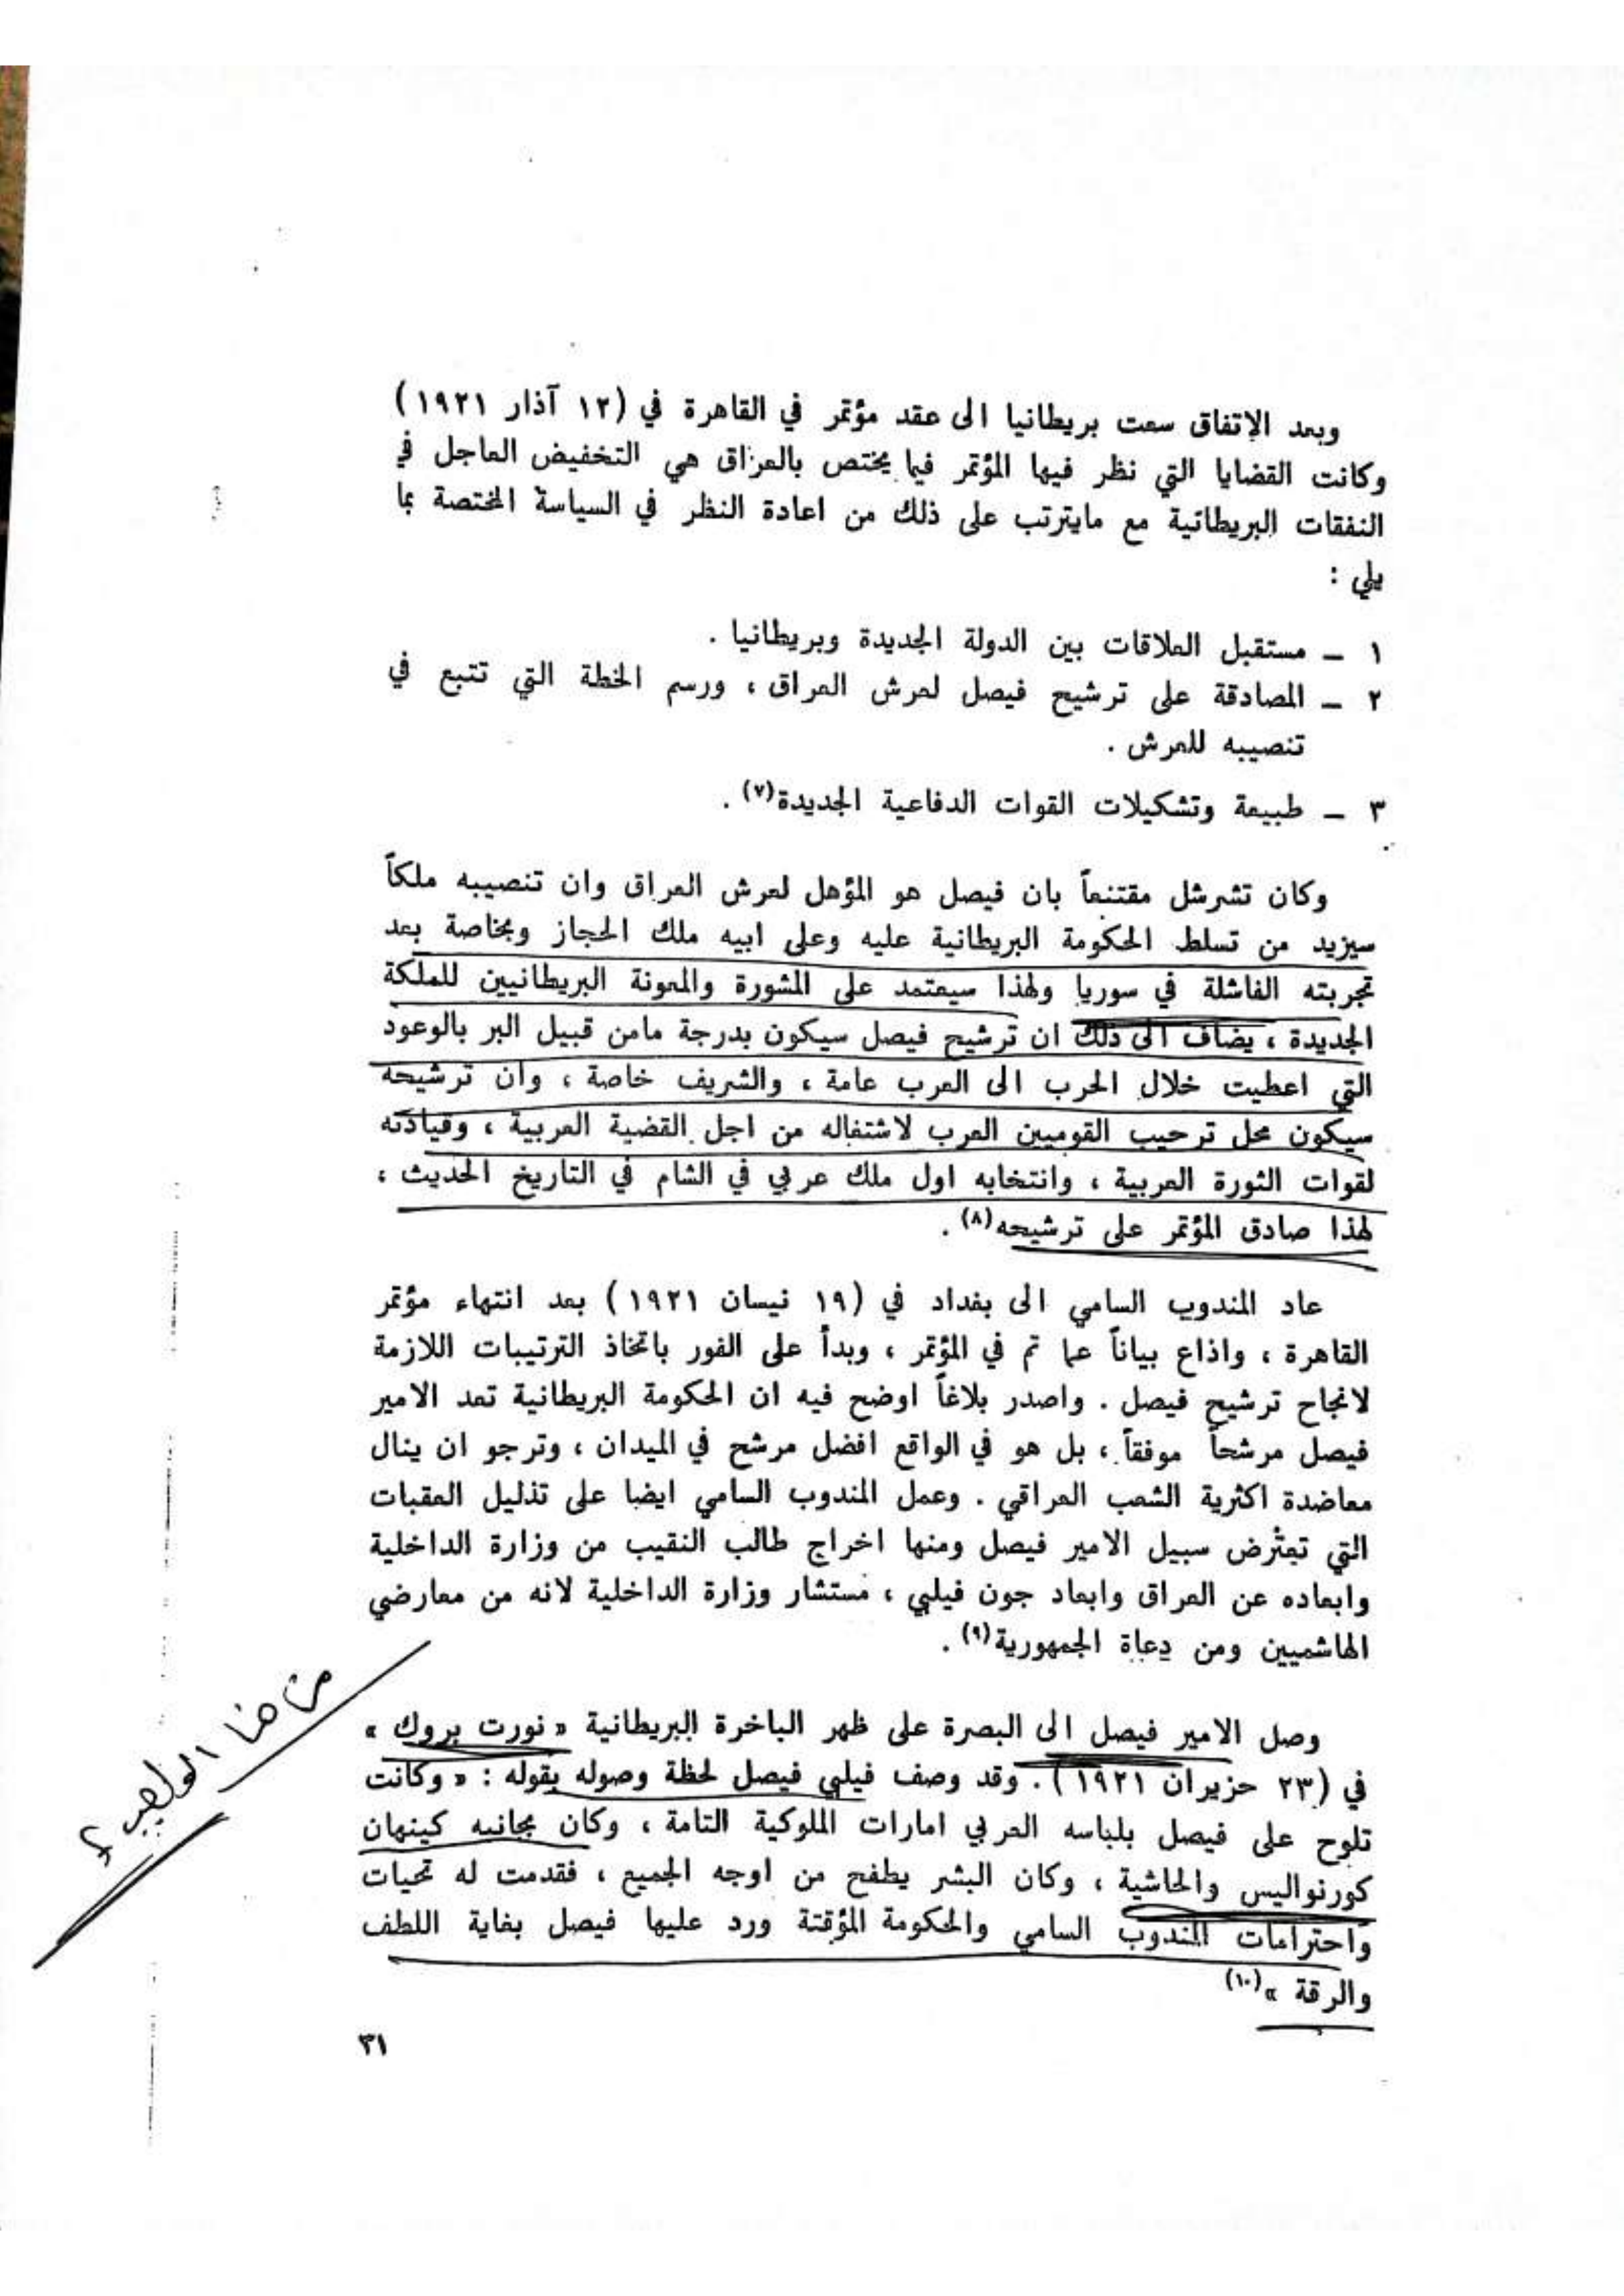 وبعد الإتفاق سعت بريطانيا الى عقد مؤتمر في القاهرة في (١٢ آذار ١٩٢١)
وكانت القضايا التي نظر فيها المؤتمر فيما يختص بالعراق هي التخفيض العاجل في
النفقات البريطانية مع مايترتب على ذلك من اعادة النظر في السياسة المختصة بما
يلي :
١ ـ مستقبل العلاقات بين الدولة الجديدة وبريطانيا .
٢ ـ المصادقة على ترشيح فيصل لعرش العراق ، ورسم الخطة التي تتبع في
تنصيبه للعرش .
٣ ـ طبيعة وتشكيلات القوات الدفاعية الجديدة(٧) .
وكان تشرشل مقتنعاً بان فيصل هو المؤهل لعرش العراق وان تنصيبه ملكاً
سيزيد من تسلط الحكومة البريطانية عليه وعلى ابيه ملك الحجاز وبخاصة بعد
تجربته الفاشلة في سوريا ولهذا سيعتمد على المشورة والمعونة البريطانيين للملكة
الجديدة ، يضاف الى ذلك ان ترشيح فيصل سيكون بدرجة مامن قبيل البر بالوعود
التي اعطيت خلال الحرب الى العرب عامة ، والشريف خاصة ، وان ترشيحه
سيكون محل ترحيب القوميين العرب لاشتغاله من اجل القضية العربية ، وقيادته
لقوات الثورة العربية ، وانتخابه اول ملك عربي في الشام في التاريخ الحديث ،
لهذا صادق المؤتمر على ترشيحه(٨) .
عاد المندوب السامي الى بغداد في (١٩ نيسان ١٩٢١) بعد انتهاء مؤتمر
القاهرة ، واذاع بياناً عما تم في المؤتمر ، وبدأ على الفور باتخاذ الترتيبات اللازمة
لانجاح ترشيح فيصل . واصدر بلاغاً اوضح فيه ان الحكومة البريطانية تعد الامير
فيصل مرشحاً موفقاً ، بل هو في الواقع افضل مرشح في الميدان ، وترجو ان ينال
معاضدة اكثرية الشعب العراقي . وعمل المندوب السامي ايضا على تذليل العقبات
التي تعترض سبيل الامير فيصل ومنها اخراج طالب النقيب من وزارة الداخلية
وابعاده عن العراق وابعاد جون فيلبي ، مستشار وزارة الداخلية لانه من معارضي
الهاشميين ومن دعاة الجمهورية(٩) .
وصل الامير فيصل الى البصرة على ظهر الباخرة البريطانية « نورت بروك »
في (٢٣ حزيران ١٩٢١) . وقد وصف فيلبي فيصل لحظة وصوله بقوله : « وكانت
تلوح على فيصل بلباسه العربي امارات الملوكية التامة ، وكان بجانبه كينهان
كورنواليس والحاشية ، وكان البشر يطفح من اوجه الجميع ، فقدمت له تحيات
واحترامات المندوب السامي والحكومة المؤقتة ورد عليها فيصل بغاية اللطف
والرقة »(١٠)
٣١